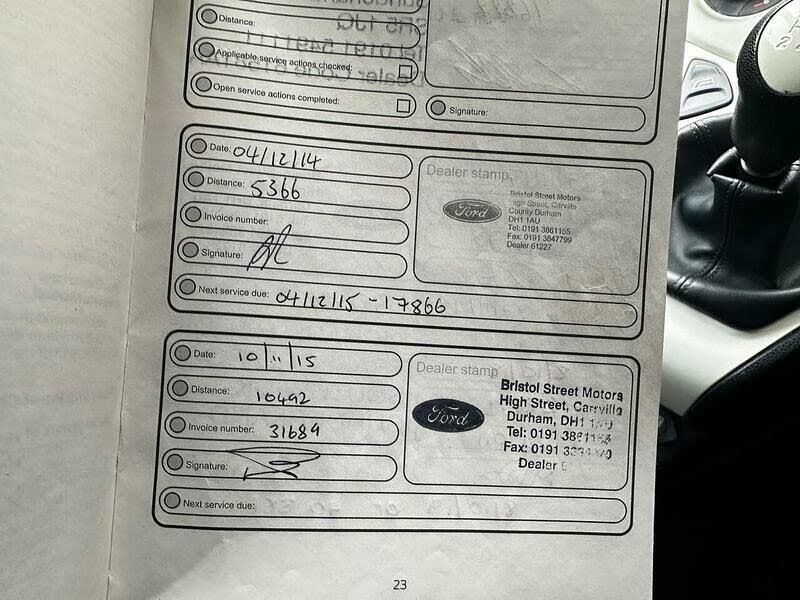 Distance:
Applicable service actions checked:
Open service actions completed:
Signature:
Date: 04/12/14
Distance: 5366
Invoice number:
Signature:
Next service due: 04/12/15 - 17866
Dealer stamp
Ford
Bristol Street Motors
High Street, Carrville
County Durham
DH1 1AU
Tel: 0191 3861155
Fax: 0191 3847799
Dealer 61227
Date: 10/11/15
Distance: 10492
Invoice number: 31689
Signature:
Next service due:
Dealer stamp
Ford
Bristol Street Motors
High Street, Carrville
Durham, DH1
Tel: 0191
Fax: 0191
Dealer
23